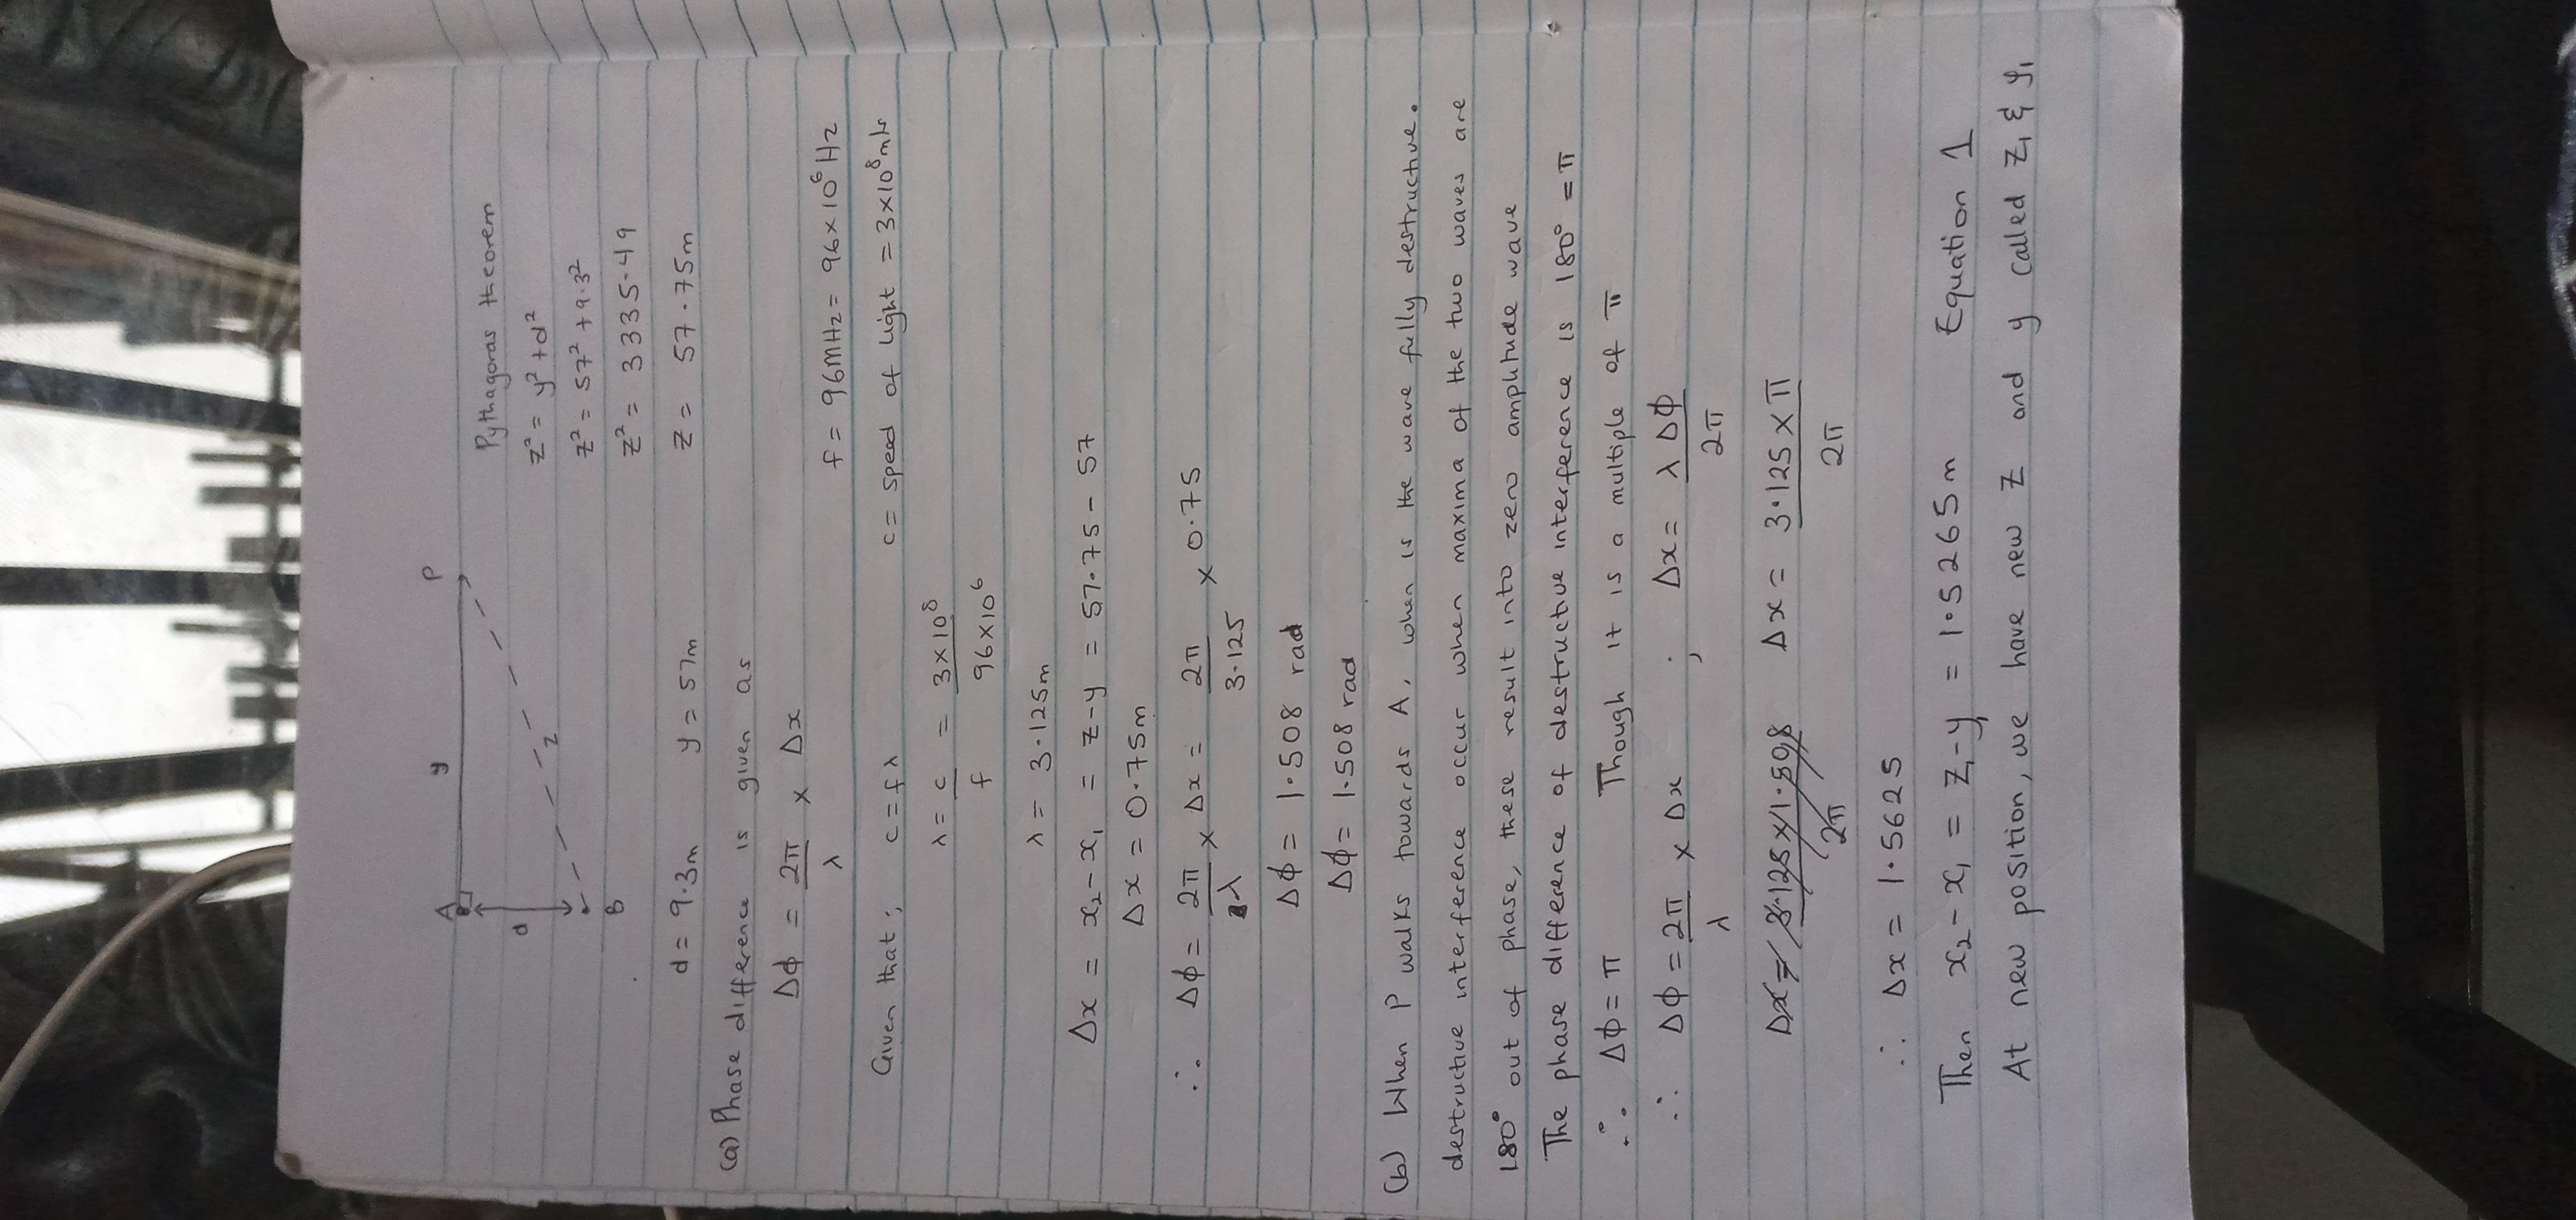 A y P
d z
B
Pythagoras theorem
z² = y² + d²
z² = 57² + 9.3²
z² = 3335.49
d = 9.3m y = 57m z = 57.75m
(a) Phase difference is given as
Δφ = 2π/λ × Δx
f = 96MHz = 96×10⁶ Hz
Given that; c = fλ c = speed of light = 3×10⁸ m/s
λ = c/f = 3×10⁸/96×10⁶
λ = 3.125m
Δx = x₂ - x₁ = z - y = 57.75 - 57
Δx = 0.75m
∴ Δφ = 2π/λ × Δx = 2π/3.125 × 0.75
Δφ = 1.508 rad
Δφ = 1.508 rad
(b) When P walks towards A, when is the wave fully destructive.
destructive interference occur when maxima of the two waves are
180° out of phase, these result into zero amplitude wave
The phase difference of destructive interference is 180° = π
∴ Δφ = π Though it is a multiple of π
∴ Δφ = 2π/λ × Δx ; Δx = λΔφ/2π
Δx = 3.125×1.508/2π Δx = 3.125×π/2π
∴ Δx = 1.5625
Then x₂ - x₁ = z₁ - y₁ = 1.5265m Equation 1
At new position, we have new z and y called z₁ & y₁